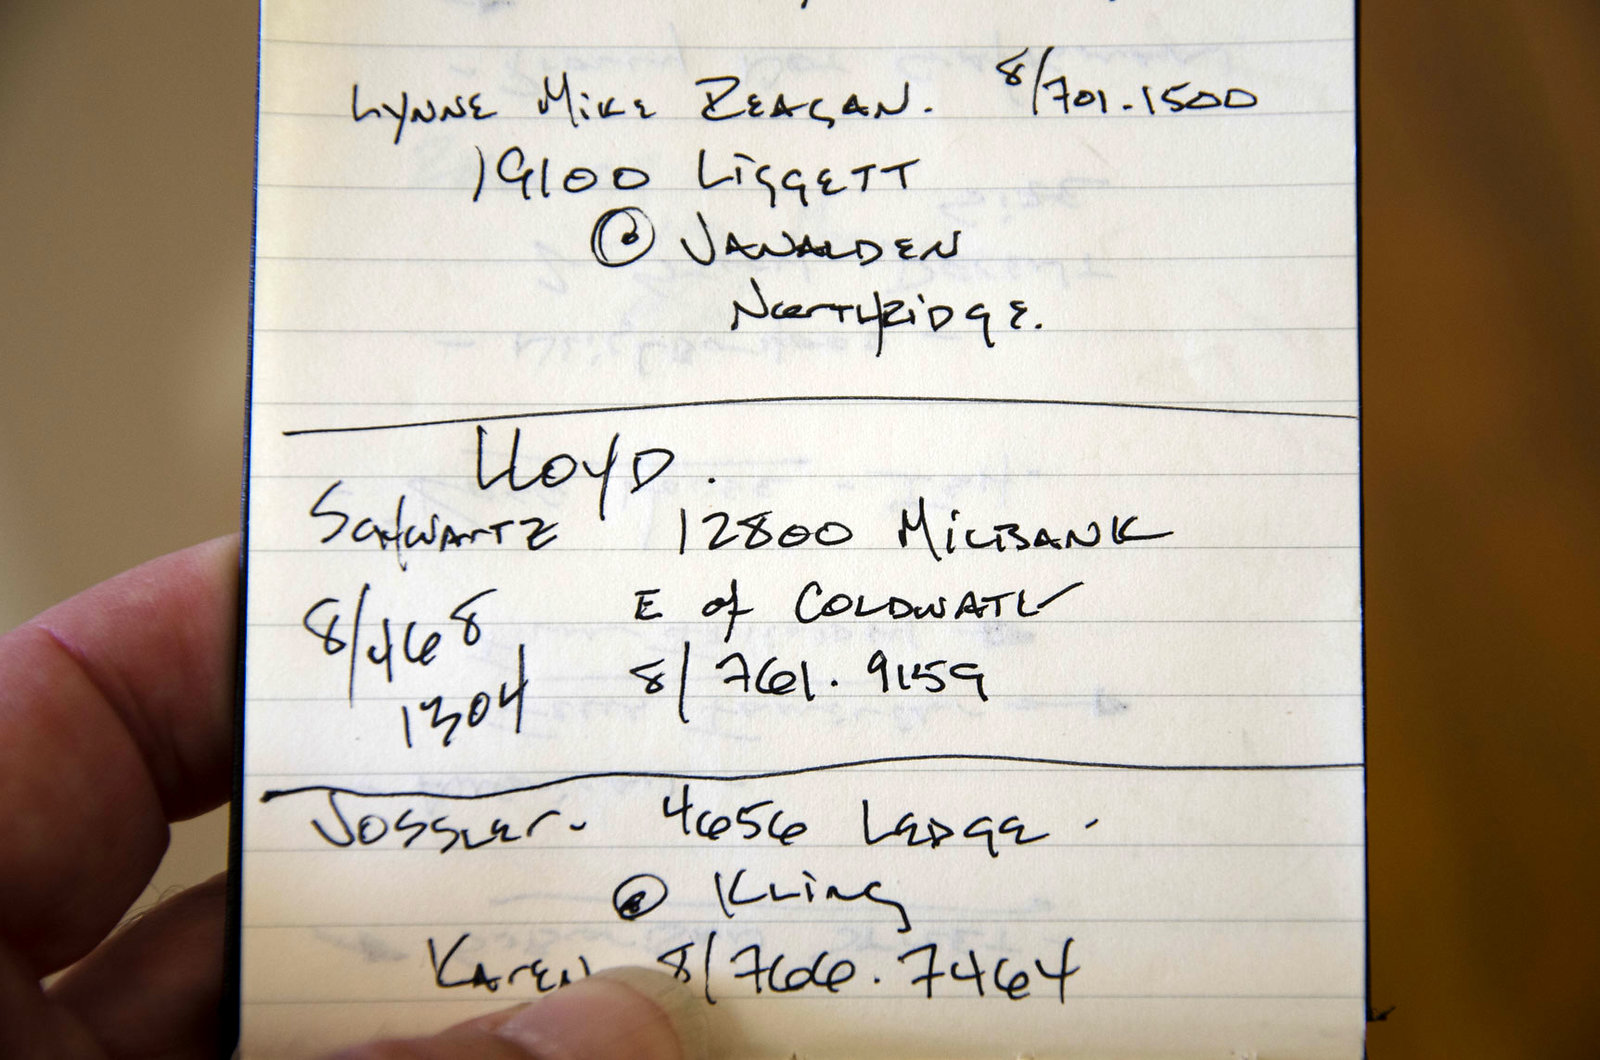 Lynne Mike Reagan. 8/701.1500
19100 Liggett
@ Vanalden
Northridge.
Lloyd.
Schwartz 12800 Milbank
8/468 E of Coldwatr
1304 8/761.9159
Jossler. 4656 Ledge.
@ Kling
Karen 8/766.7464